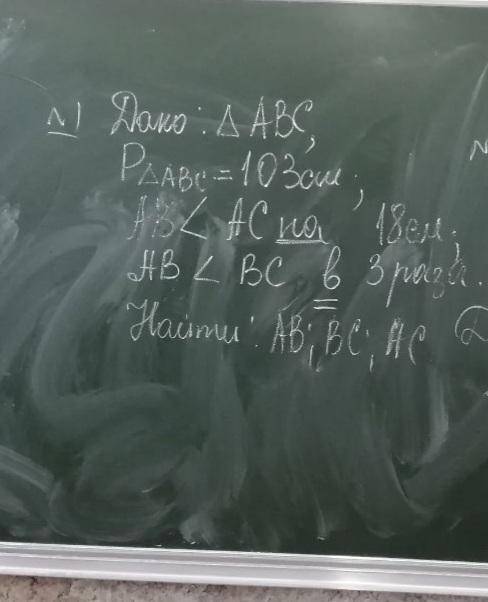 №1 Дано: △ABC,
P△ABC = 103см;
AB < AC на 18см;
AB < BC в 3 раза.
Найти: AB; BC; AC